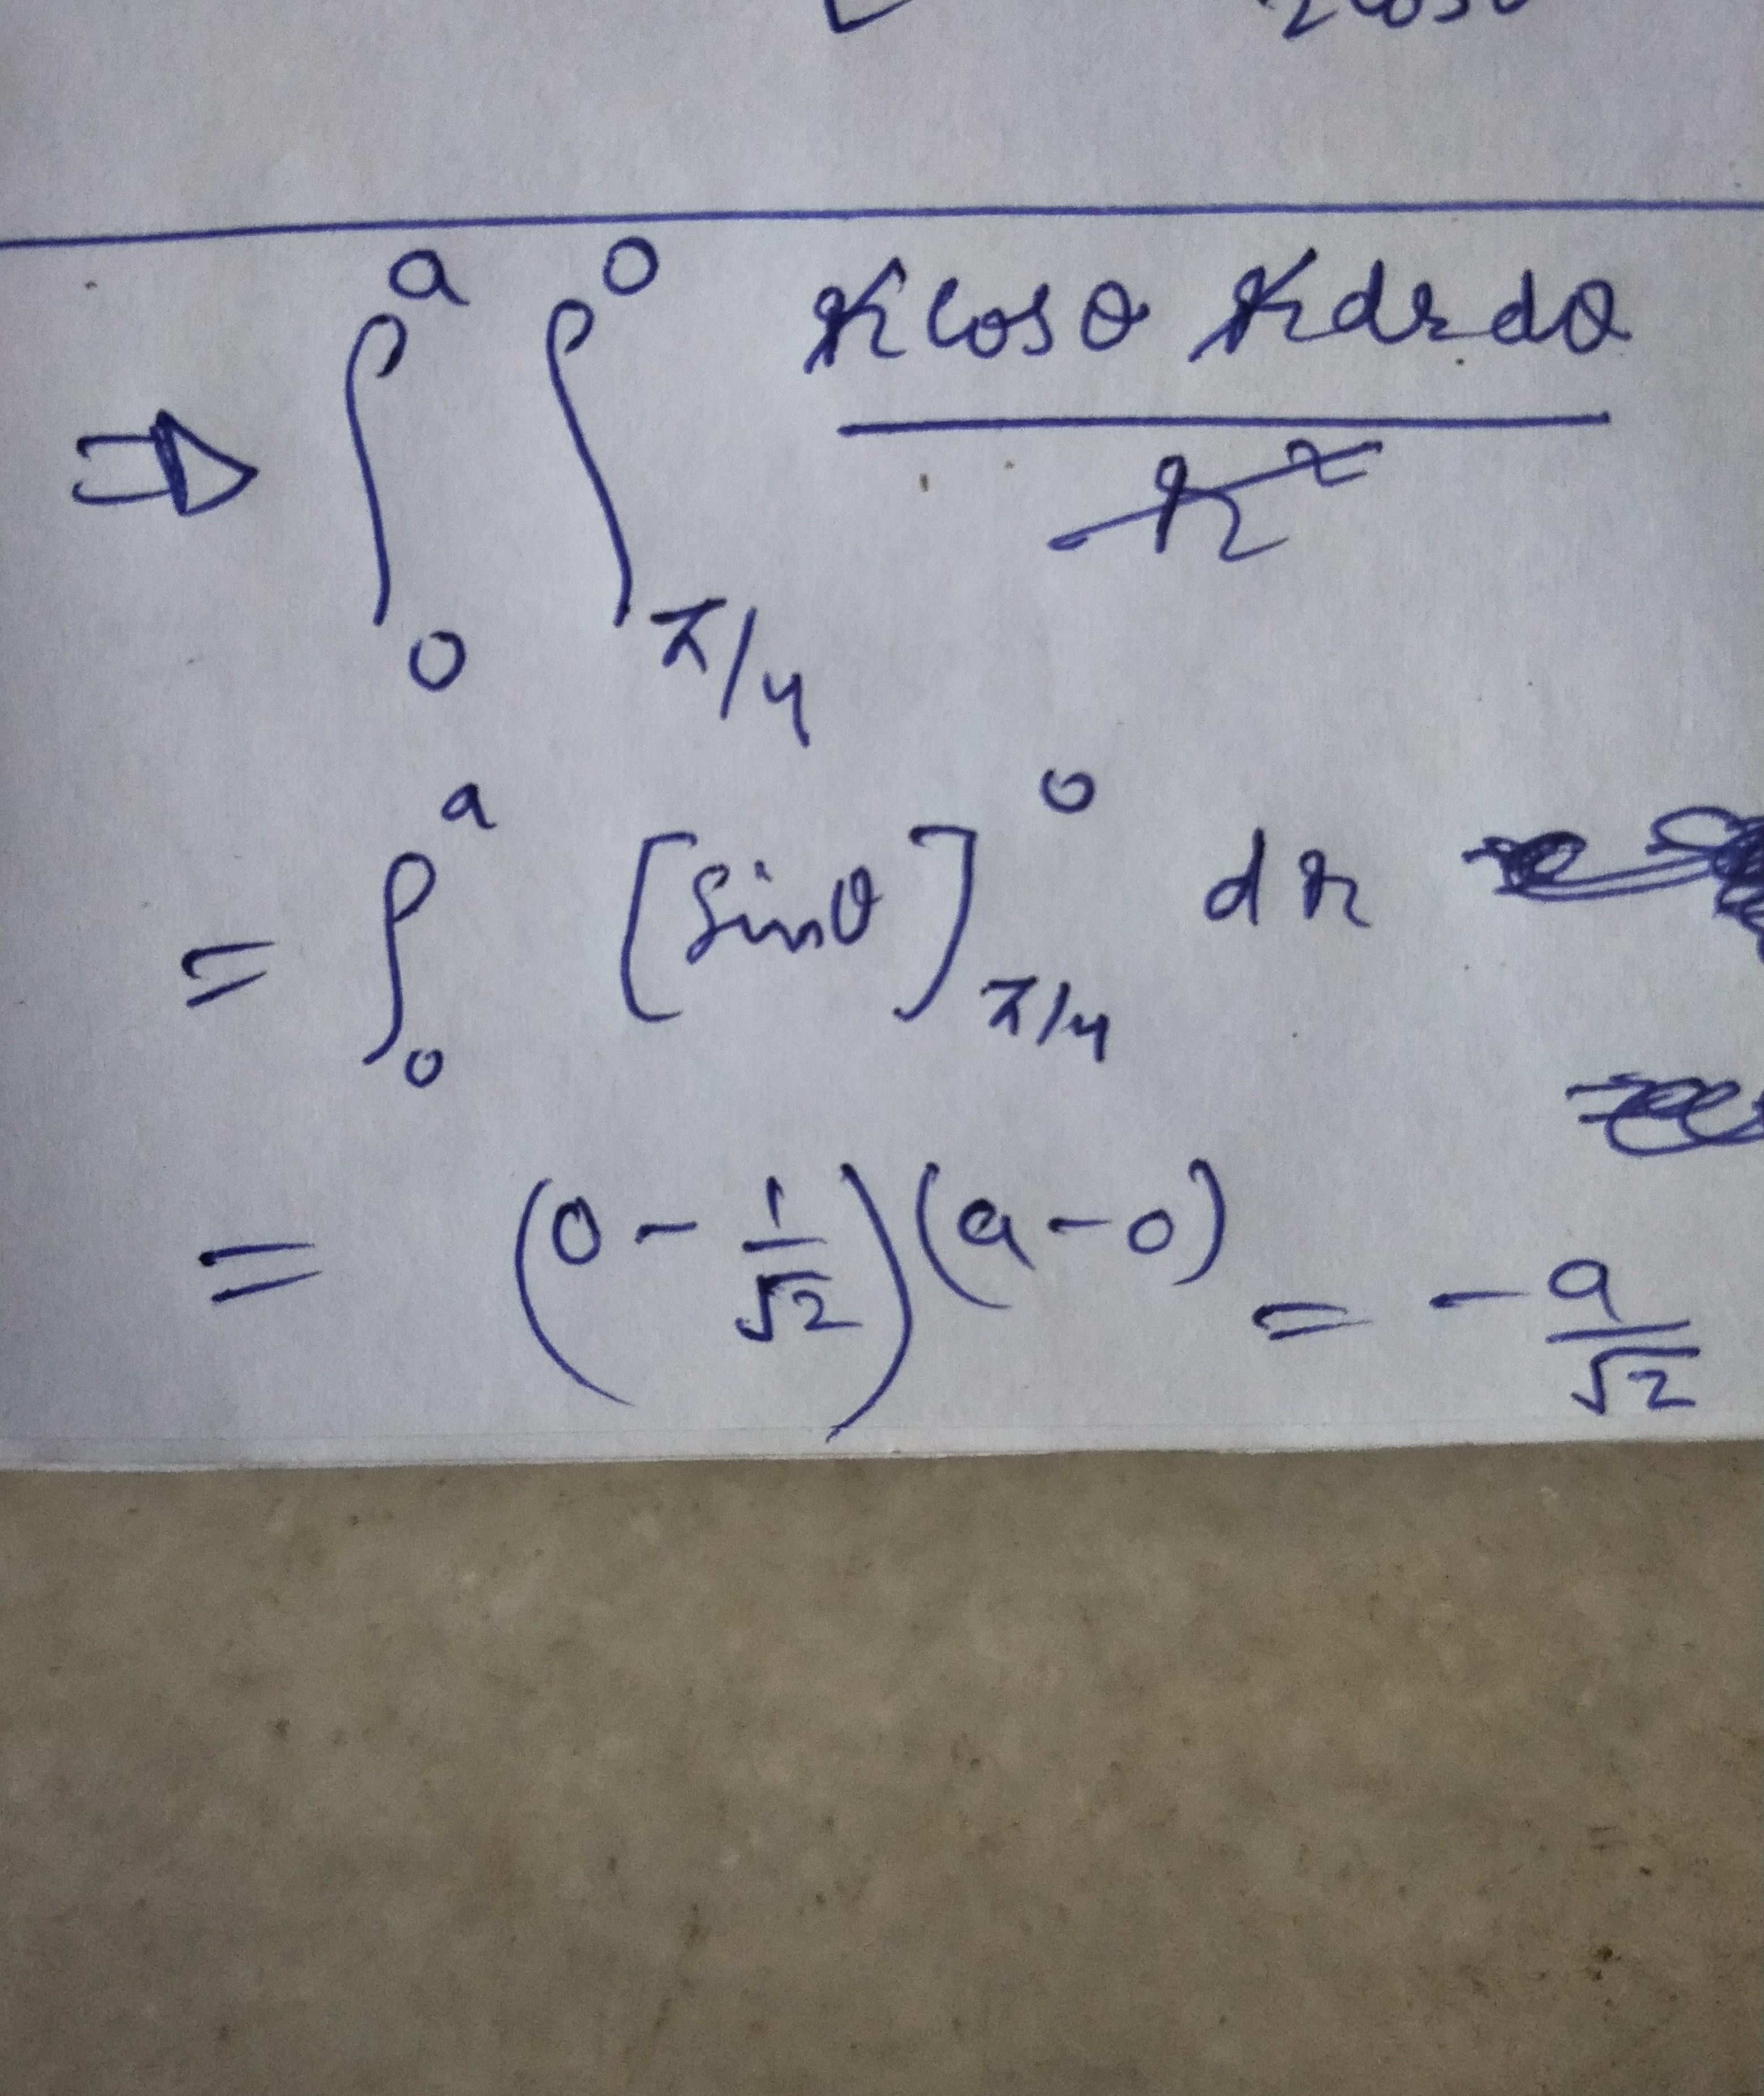 2cosθ
⇒ ∫₀^a ∫_{π/4}^0 (r cosθ r dr dθ) / r²
= ∫₀^a [sinθ]_{π/4}^0 dr
= (0 - 1/√2)(a - 0) = -a/√2